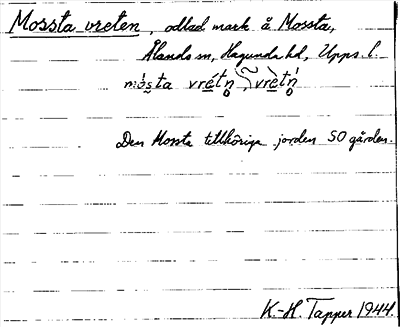 Mossta vreten, odlad mark å Mossta,
Ålands sn, Hagunda hd, Upps. l.
mòsta vrétn̥, vrètn̥
Den Mossta tillhöriga jorden SO gården.
K.-H. Tapper 1944.